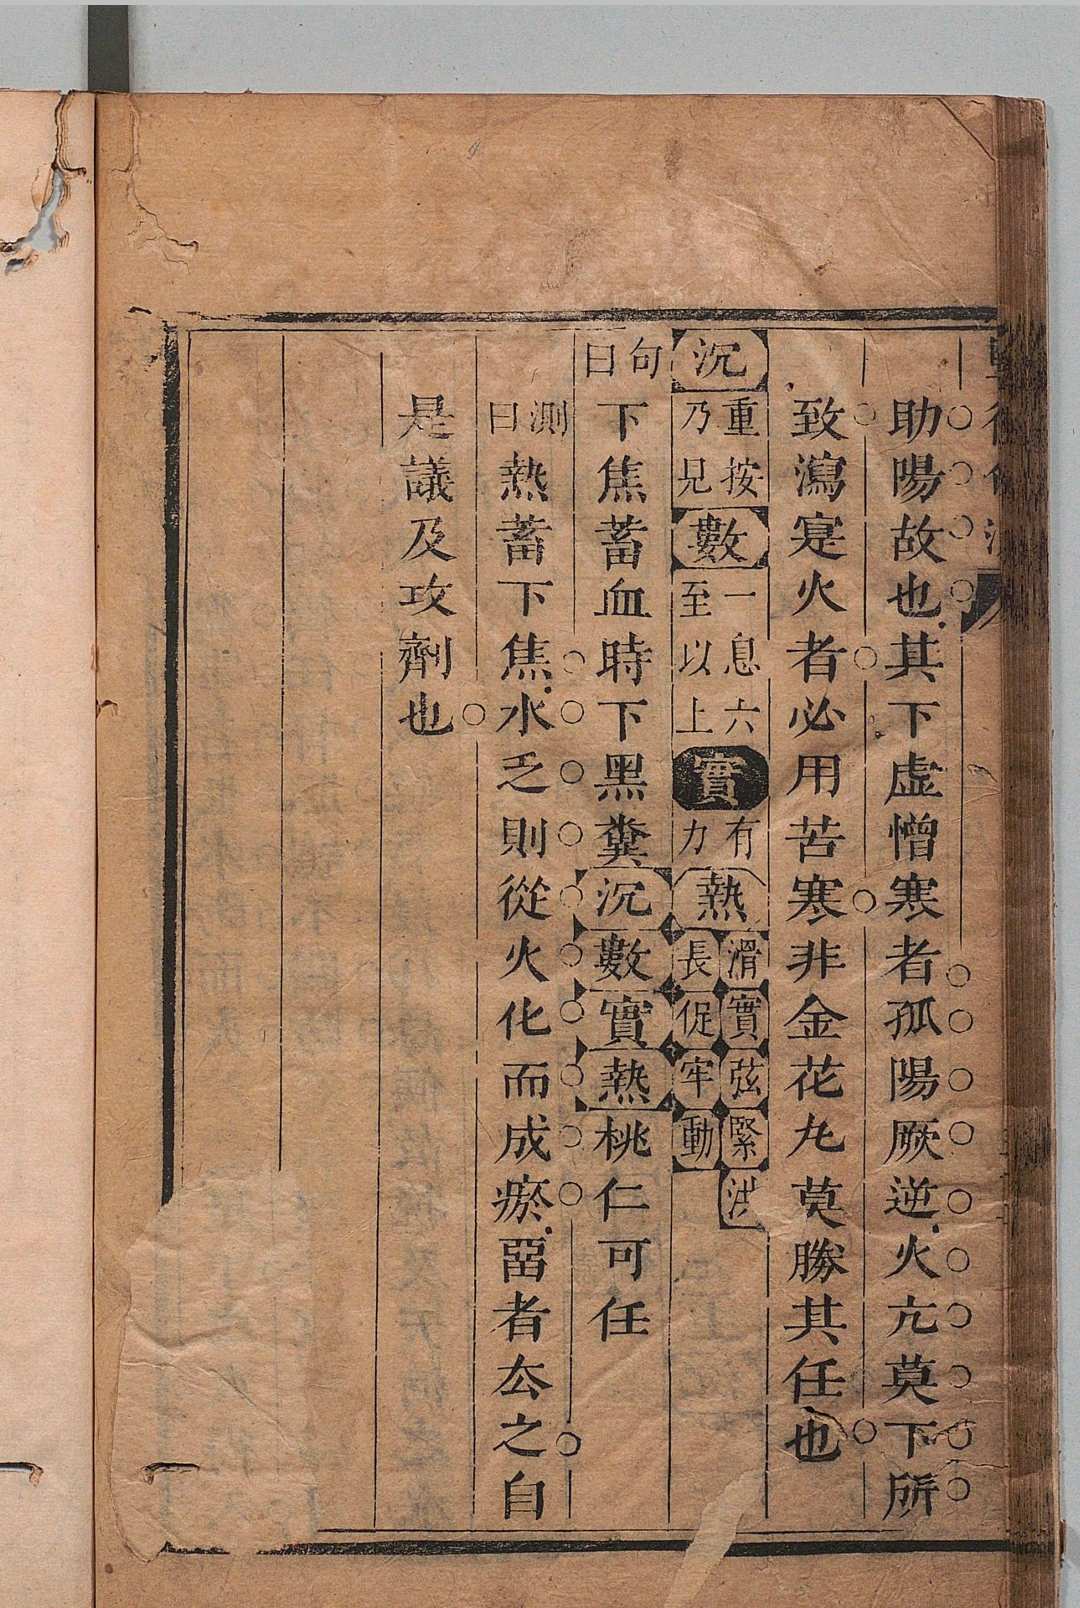 助陽故也其下虛憎寒者孤陽厥逆火亢莫下所
致瀉寔火者必用苦寒非金花尢莫勝其任也
沉重按乃見數一息六至以上實有力熱滑實弦緊洪長促牢動
句曰下焦蓄血時下黑糞沉數實熱桃仁可任
測曰熱蓄下焦水乏則從火化而成瘀畱者厺之自
是議及攻劑也